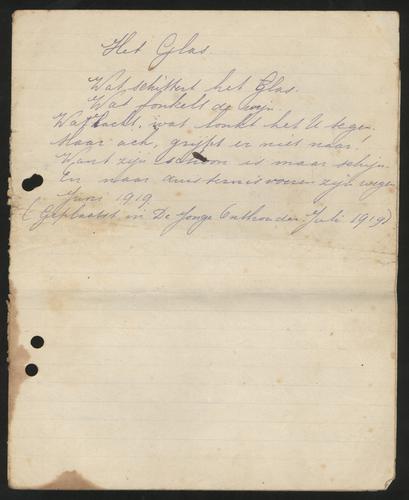 Het Glas.
Wat schittert het Glas.
Wat fonkelt de wijn.
Wat lacht, wat lonkt het U tegen.
Maar ach, grijpt er niet naar!
Want zijn schoon is maar schijn.
En naar duisternis voeren zijn wegen
Juni 1919.
(Geplaatst in De Jonge Onthouder Juli 1919)